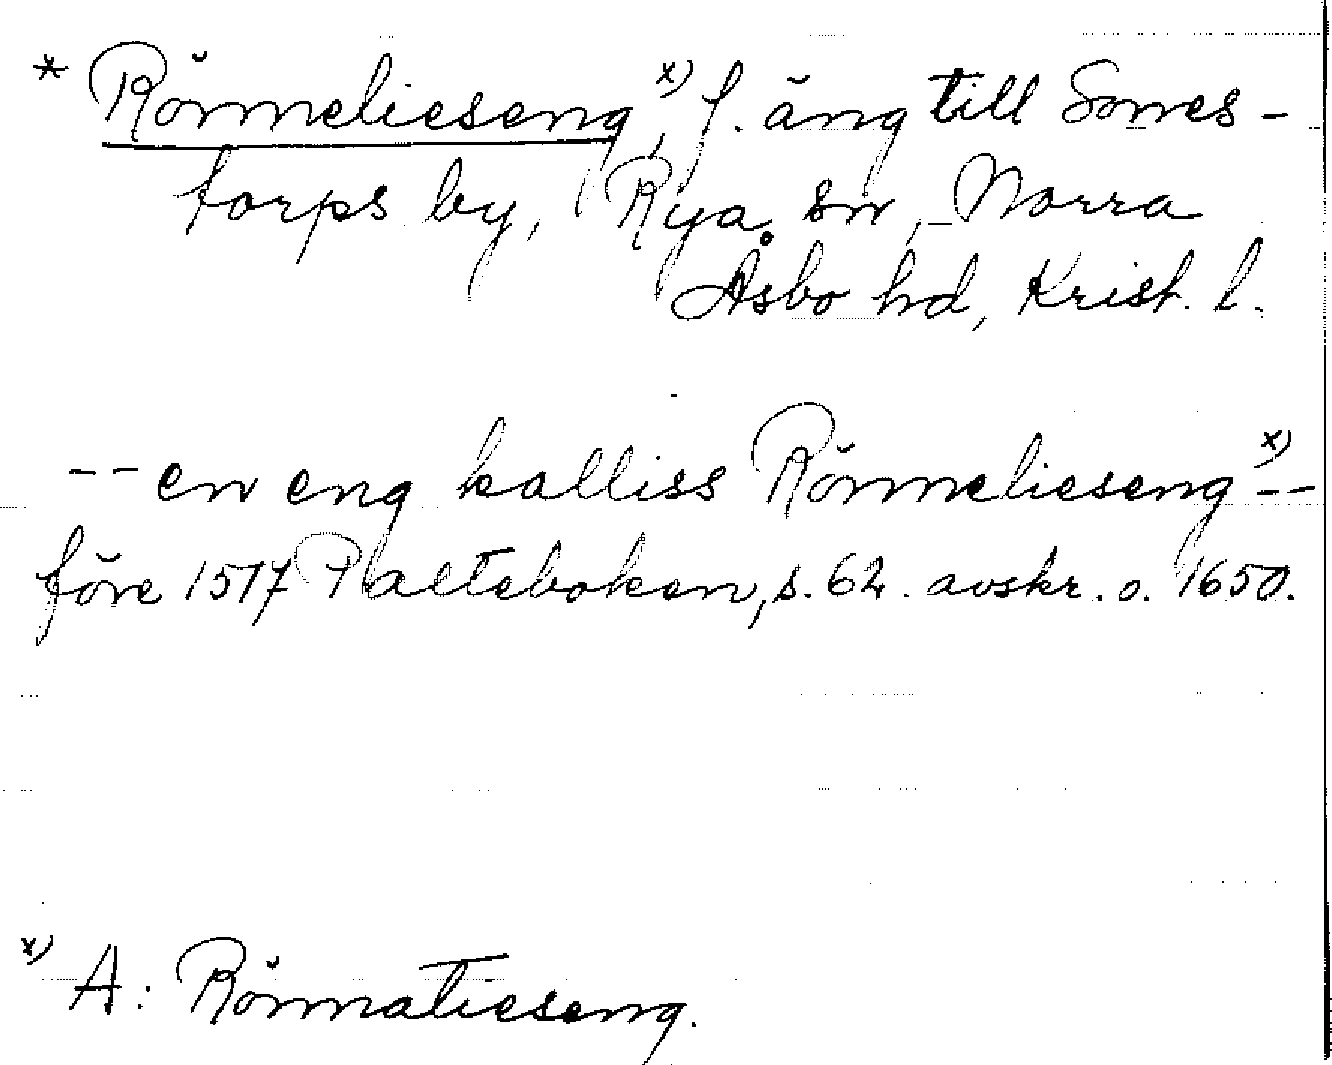 * Rönnelieseng,ˣ⁾ f. äng till Sones-
torps by, Rya sn, Norra
Åsbo hd, Krist. l.
-- en eng kalliss Rönnelieseng ˣ⁾ --
före 1517 Palteboken, s. 62. avskr. o. 1650.
ˣ⁾ A: Rönnatieseng.